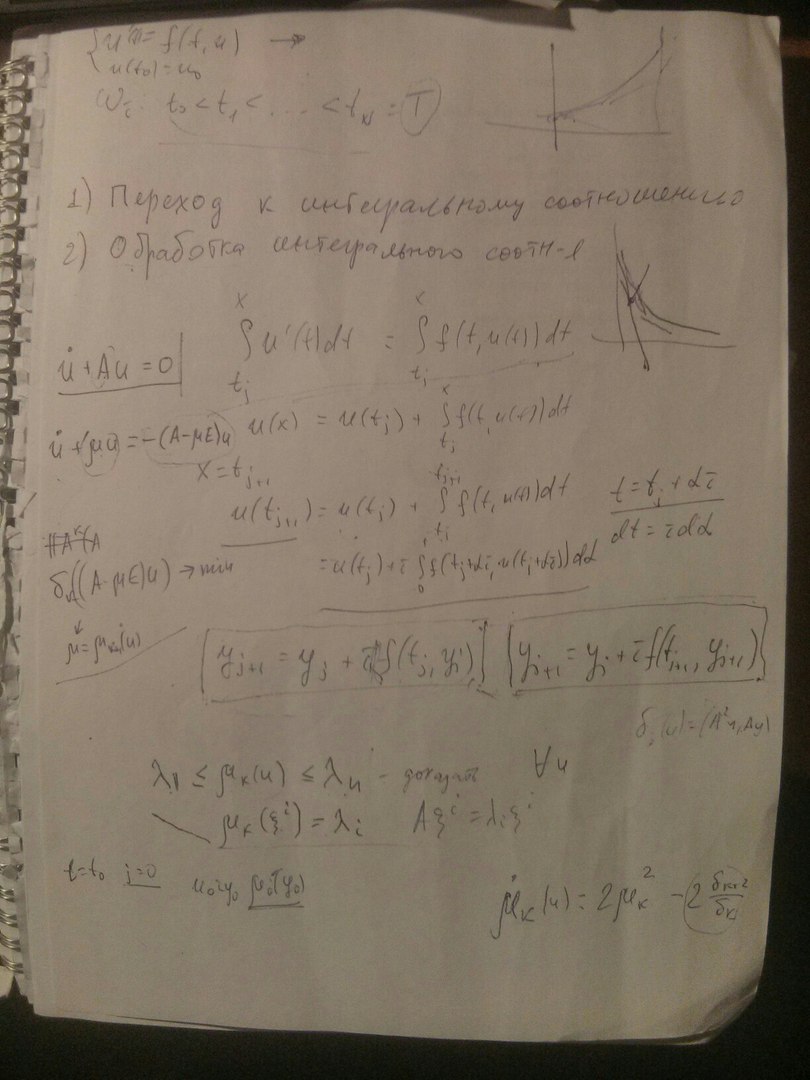 { u'(t) = f(t, u) →
{ u(t₀) = u₀
t₀ < t₁ < .... < t_N = T
1) Переход к интегральному соотношению
2) Обработка интегрального соотн-я
∫_{t_j}^{x} u'(t)dt = ∫_{t_j}^{x} f(t, u(t))dt
u̇ + Au = 0
u̇ + μu = -(A-μE)u
u(x) = u(t_j) + ∫_{t_j}^{x} f(t, u(t))dt
x = t_{j+1}
u(t_{j+1}) = u(t_j) + ∫_{t_j}^{t_{j+1}} f(t, u(t))dt
t = t_j + ατ
dt = τdα
= u(t_j) + τ ∫_0^1 f(t_j+ατ, u(t_j+ατ))dα
((A-μE)u) → min
μ = μ_k(u)
y_{j+1} = y_j + τ f(t_j, y_j)
y_{j+1} = y_j + τ f(t_{j+1}, y_{j+1})
(u) = (A²u, Au)
λ₁ ≤ μ_k(u) ≤ λ_n - доказать ∀u
μ_k(ξ^i) = λ_i Aξ^i = λ_i ξ^i
t = t₀ j = 0 u₀ = y₀ μ₀(y₀)
μ̇_k(u) = 2μ_k² - 2 δ_{k+2}/δ_k